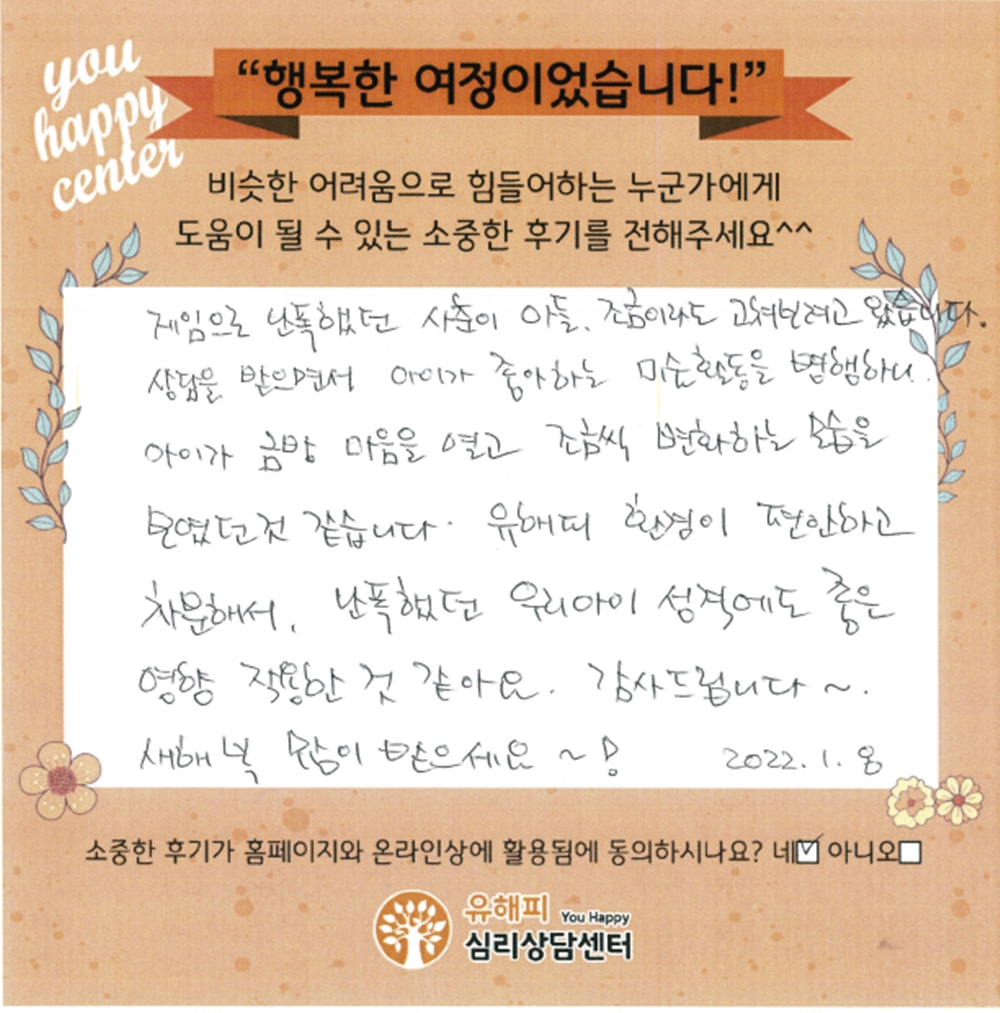 you
happy
center
“행복한 여정이었습니다!”
비슷한 어려움으로 힘들어하는 누군가에게
도움이 될 수 있는 소중한 후기를 전해주세요^^
게임으로 난폭했던 사춘이 아들, 조금이라도 고쳐보려고 왔습니다.
상담을 받으면서 아이가 좋아하는 미술활동을 병행하니..
아이가 금방 마음을 열고 조금씩 변화하는 모습을
보였던것 같습니다. 유해피 환경이 편안하고
차분해서, 난폭했던 우리아이 성격에도 좋은
영향 작용한 것 같아요. 감사드립니다~.
새해 복 많이 받으세요~! 2022.1.8
소중한 후기가 홈페이지와 온라인상에 활용됨에 동의하시나요? 네☑ 아니오☐
유해피 You Happy
심리상담센터